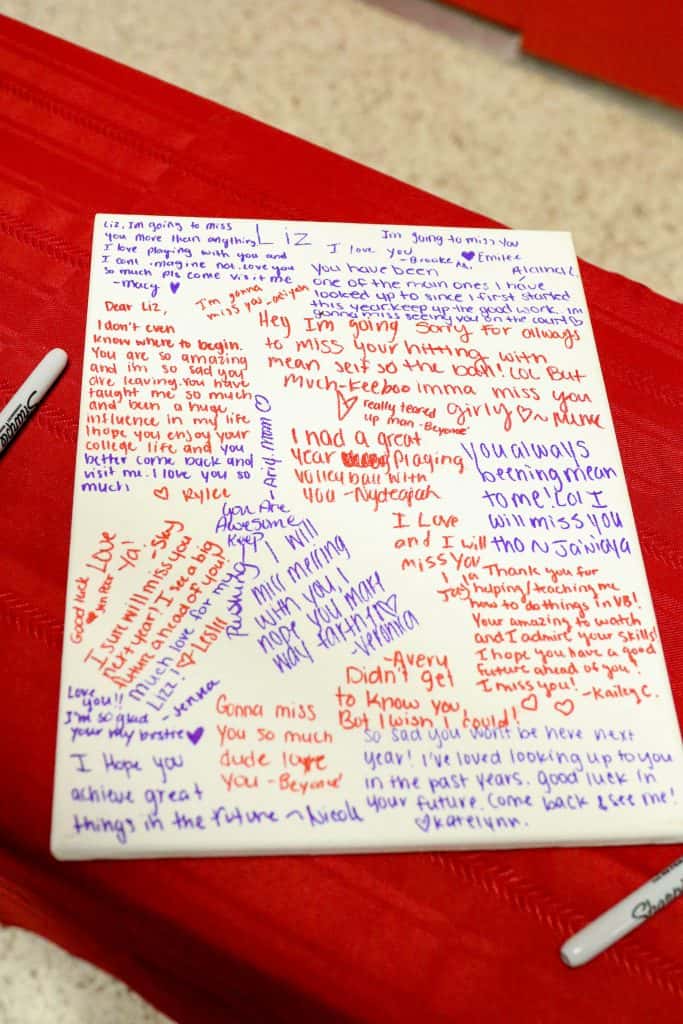 Liz
Liz, I'm going to miss
you more than anything
I love playing with you and
I cant imagine not. Love you
so much pls come visit me
-Macy
I'm going to miss you
Emilee
I love you
-Brooke
Alaina
You have been
one of the main ones I have
looked up to since I first started
this year keep up the good work, im
gonna miss seeing you on the court
I'm gonna
miss you
Dear Liz,
I don't even
know where to begin.
You are so amazing
and im so sad you
are leaving. You have
taught me so much
and been a huge
influence in my life
I hope you enjoy your
college life and you
better come back and
visit me. I love you so
much
Rylee
Hey Im going
to miss your hitting with
mean self
much-Keeboo
Sorry for allways
so the ball! Lol But
Imma miss you
girly ~
really teared
up man -Beyoncé
I had a great
year Playing
Volley ball with
YOU -Nydeajah
You always
beening mean
to me! Lol I
will miss you
tho ~ Jaiviaya
Mom
You Are
Awesome
Keep
pushing
I will
miss messing
with you I
hope you make
way
-Veronica
I Love
and I will
miss You
Good luck
Love
Ya!
I sure will miss you
next year! I see a big
future ahead of you!
-Sky
Much love for my
Lizz!
Leslii
Thank you for
helping/teaching me
how to do things in VB!
Your amazing to watch
and I admire your skills!
I hope you have a good
future ahead of you!
I miss you!
-Kailey C.
-Avery
Didn't get
to know you,
But I wish I could!
Love
you!!
I'm so glad
your my brstie
-Jenna
Gonna miss
You so much
dude love
you -Beyoncé
I Hope you
achieve great
things in the future ~Nicole
So sad you won't be here next
year! I've loved looking up to you
in the past years. good luck in
your future. Come back & see me!
Katelynn.
Sharpie
Sharpie